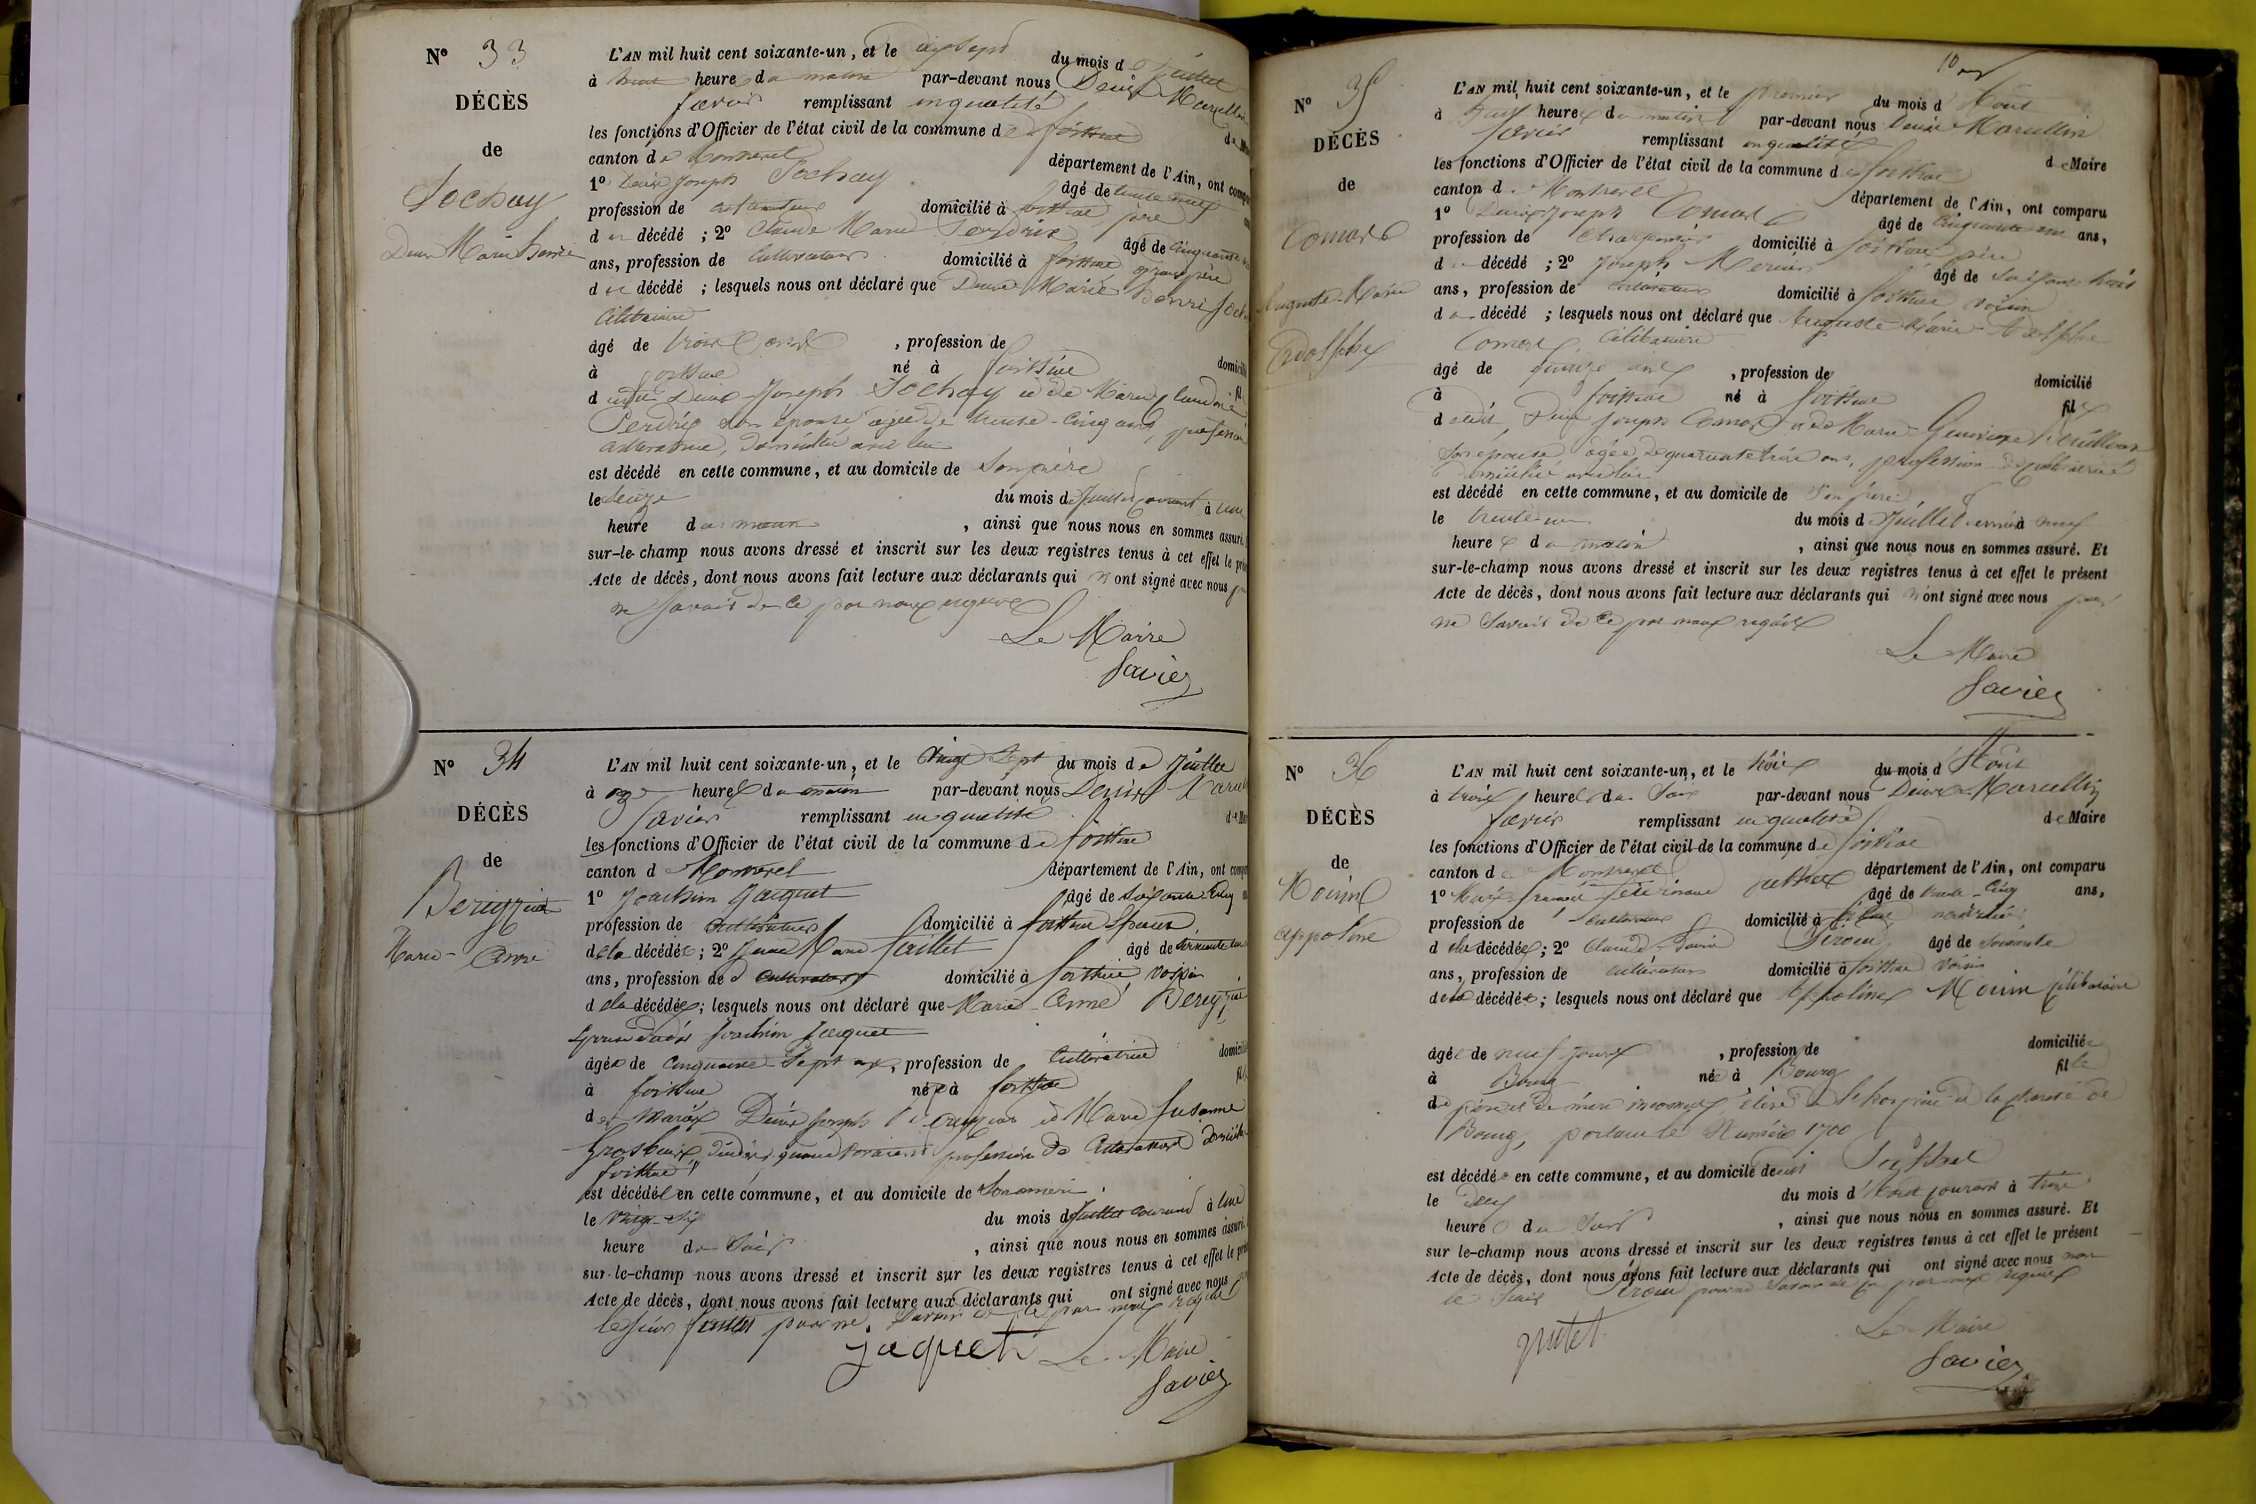 N° 33
DÉCÈS
de
Sochay
Denis Marie Henri
L'AN mil huit cent soixante-un, et le dix sept du mois de Juillet
à heure du matin par-devant nous Denis Marcellin
Savier remplissant en qualité de
les fonctions d'Officier de l'état civil de la commune de foissiat
canton de Montrevel département de l'Ain, ont comparu
1° Denis Joseph Sochay âgé de trente neuf
profession de cultivateur domicilié à foissiat père
du décédé ; 2° Claude Marie Perdrix âgé de cinquante
ans, profession de Cultivateur domicilié à foissiat grand père
du décédé ; lesquels nous ont déclaré que Denis Marie Henri Soch
Célibataire
âgé de trois ans , profession de
à foissiat né à foissiat domicilié
d udit Denis Joseph Sochay et de Marie Claudine fil
Perdrix son épouse âgée de trente-cinq ans, profession
cultivatrice, domiciliée audit lieu
est décédé en cette commune, et au domicile de Son père
le seize du mois de Juillet courant à une
heure du matin , ainsi que nous nous en sommes assuré.
sur-le-champ nous avons dressé et inscrit sur les deux registres tenus à cet effet le
Acte de décès, dont nous avons fait lecture aux déclarants qui n'ont signé avec nous
ne savoir de ce par nous requis
Le Maire
Savier
N° 34
DÉCÈS
de
Marie-Anne
L'AN mil huit cent soixante-un, et le Vingt Sept du mois de Juillet
à onze heures du matin par-devant nous Denis
Savier remplissant en qualité
les fonctions d'Officier de l'état civil de la commune de foissiat
canton de Montrevel département de l'Ain, ont
1° Joachim Jacquet âgé de Soixante Cinq
profession de Cultivateur domicilié à foissiat Epoux
de la décédée ; 2° Marie âgé de
ans, profession de Cultivateur domicilié à foissiat, voisin
de la décédée ; lesquels nous ont déclaré que Marie-Anne
Epouse dudit Joachim Jacquet
âgée de cinquante Sept ans, profession de Cultivatrice
à foissiat née à foissiat
Denis Joseph et Marie Susanne
profession de
foissiat
est décédée en cette commune, et au domicile de Son mari
le Vingt-Six du mois de Juillet courant à une
heure du Soir , ainsi que nous nous en sommes assuré.
sur-le-champ nous avons dressé et inscrit sur les deux registres tenus à cet effet le
Acte de décès, dont nous avons fait lecture aux déclarants qui ont signé avec nous
le Sieur pour ne savoir de ce par nous requis
jaquet Le Maire
Savier
N° 35
DÉCÈS
de
Comard
Auguste-Marie
Adolphe
L'AN mil huit cent soixante-un, et le premier du mois d'Août
à heures du matin par-devant nous Denis Marcellin
Savier remplissant en qualité
les fonctions d'Officier de l'état civil de la commune de foissiat de Maire
canton de Montrevel département de l'Ain, ont comparu
1° Denis Joseph Comard âgé de Cinquante un ans,
profession de Charpentier domicilié à foissiat père
du décédé ; 2° Joseph Mercier âgé de Soixante trois
ans, profession de cultivateur domicilié à foissiat voisin
du décédé ; lesquels nous ont déclaré que Auguste Marie Adolphe
Comard Célibataire
âgé de quinze ans , profession de domicilié
à foissiat né à foissiat fils
dudit Denis Joseph Comard et de Marie Geneviève
Son épouse âgée de quarante trois ans, profession de
domiciliée audit lieu
est décédé en cette commune, et au domicile de Son père
le trente un du mois de Juillet dernier à neuf
heures du matin , ainsi que nous nous en sommes assuré. Et
sur-le-champ nous avons dressé et inscrit sur les deux registres tenus à cet effet le présent
Acte de décès, dont nous avons fait lecture aux déclarants qui n'ont signé avec nous pour
ne Savoir de Ce par nous requis
Le Maire
Savier
N° 36
DÉCÈS
de
Mourin
Appoline
L'AN mil huit cent soixante-un, et le trois du mois d'Août
à trois heures du Soir par-devant nous Denis Marcellin
Savier remplissant en qualité de Maire
les fonctions d'Officier de l'état civil de la commune de foissiat
canton de Montrevel département de l'Ain, ont comparu
1° Marie âgé de trente-Cinq ans,
profession de cultivateur domicilié à foissiat
de la décédée ; 2° Claude Marie Siroud âgé de Soixante
ans, profession de cultivateur domicilié à foissiat voisin
de la décédée ; lesquels nous ont déclaré que Appoline Mourin Célibataire
âgée de neuf jours , profession de domiciliée
à Bourg née à Bourg fille
de père et de mère inconnus, élève de l'hospice de la charité de
Bourg, portant le Numéro 1700
est décédée en cette commune, et au domicile dudit
le deux du mois d'Août courant à trois
heures du Soir , ainsi que nous nous en sommes assuré. Et
sur-le-champ nous avons dressé et inscrit sur les deux registres tenus à cet effet le présent
Acte de décès, dont nous avons fait lecture aux déclarants qui ont signé avec nous non
le Sieur Siroud pour ne Savoir de ce par nous requis
Le Maire
Savier